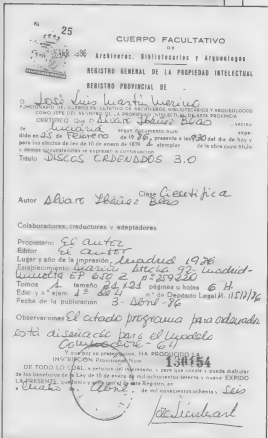 25
CUERPO FACULTATIVO
DE
Archiveros, Bibliotecarios y Arqueólogos
REGISTRO GENERAL DE LA PROPIEDAD INTELECTUAL
REGISTRO PROVINCIAL DE
D. José Luis Martín Merino
FUNCIONARIO DEL CUERPO FACULTATIVO DE ARCHIVEROS, BIBLIOTECARIOS Y ARQUEOLOGOS
COMO JEFE DEL REGISTRO DE LA PROPIEDAD INTELECTUAL EN ESTA PROVINCIA
CERTIFICO que D. Alvaro Ibáñez Blas, vecino
de Madrid según documento núm. expe-
dido en 25 de Febrero de 1986, presenta a las 930 del día de hoy y
para los efectos de la ley de 10 de enero de 1879 ejemplar de la obra cuyo título
y demás circunstancias se expresan a continuación
Título DISCOS ORDENADOS 3.0
Clase Científica
Autor Alvaro Ibáñez Blas
Colaboradores; traductores y adaptadores
Propietario El autor
Editor El autor
Lugar y año de la impresión Madrid 1986
Establecimiento Atocha 92 Madrid-
Tomos 1 tamaño páginas u hojas 6 H
Edic. y nº Fecha 1ª de nº de Depósito Legal M. 11517/86
Fecha de la publicación 3-Abril-86
Observaciones El citado programa para ordenador
está diseñado para el modelo
Commodore 64
Y que por su presentación, HA PRODUCIDO LA
INSCRIPCION Provisional Núm. 130154
DE TODO LO CUAL, a solicitud del interesado y para que conste y pueda disfrutar
de los beneficios de la Ley de 10 de enero de mil ochocientos setenta y nueve EXPIDO
LA PRESENTE, quedando y sellada con el de este Registro, en
de Abril de mil novecientos ochenta y seis